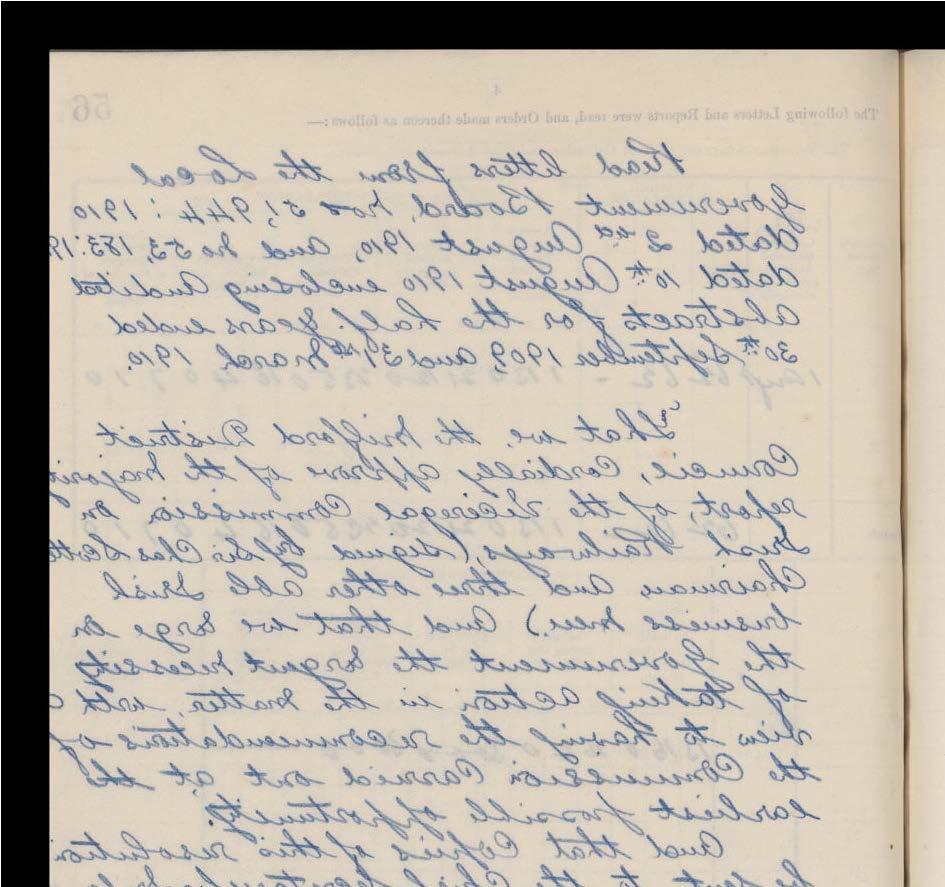 56
4
The following Letters and Reports were read, and Orders made thereon as follows:—
Read letters from the Local
Government Board, Nos 51,944 : 1910
dated 2nd August 1910, and No 53,183 : 19
dated 10th August 1910 enclosing Audited
abstracts for the half years ended
30th September 1909 and 31st March 1910.
"That we, the Milford District
Council, Cordially approve of the Majority
report, of the Viceregal Commission, on
Irish Railways, (signed by Sir Chas Scotter
Chairman and three other able Irish
business men) and that we urge on
the Government the urgent necessity
of taking action in the matter, with a
view to having the recommendations of
the Commission Carried out at the
earliest possible opportunity.
And that Copies of this resolution
be sent to the Chief Secretary